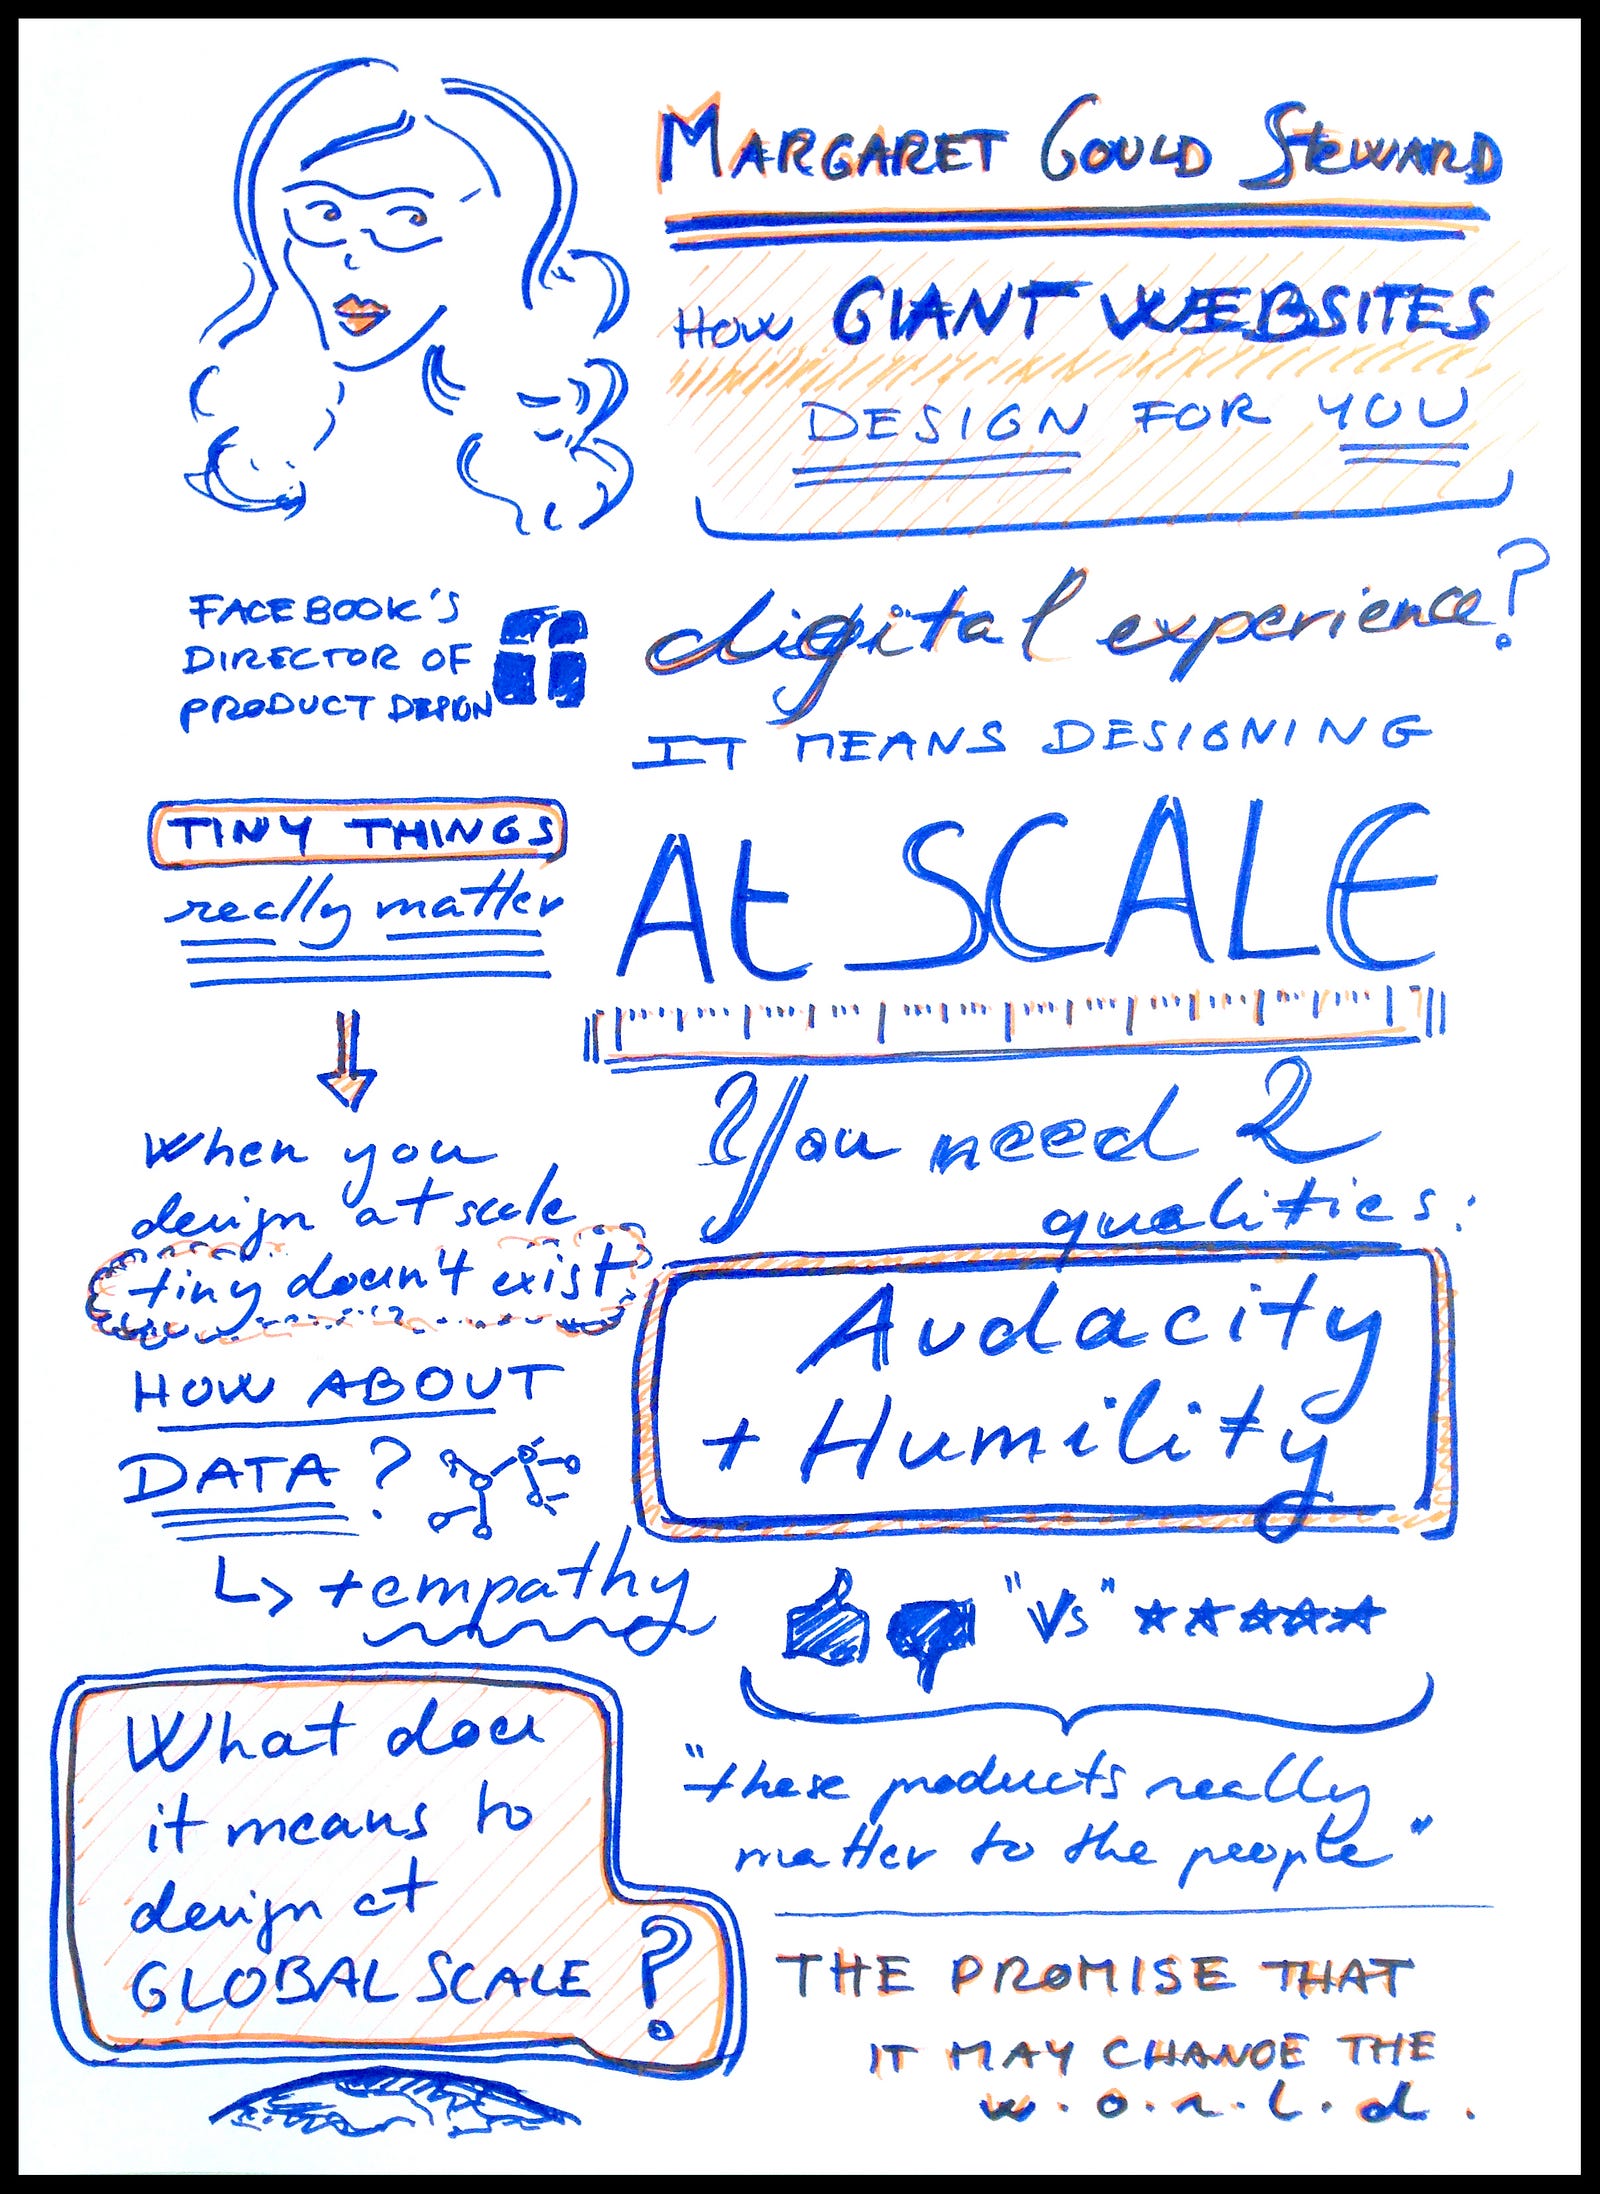 MARGARET GOULD STEWARD
HOW GIANT WEBSITES
DESIGN FOR YOU
FACEBOOK'S
DIRECTOR OF
PRODUCT DESIGN
digital experience?
IT MEANS DESIGNING
At SCALE
TINY THINGS
really matter
When you
design at scale
tiny doesn't exist
HOW ABOUT
DATA?
+ empathy
You need 2
qualities:
Audacity
+ Humility
"Vs"
"these products really
matter to the people"
What does
it means to
design at
GLOBAL SCALE ?
THE PROMISE THAT
IT MAY CHANGE THE
w.o.r.l.d.